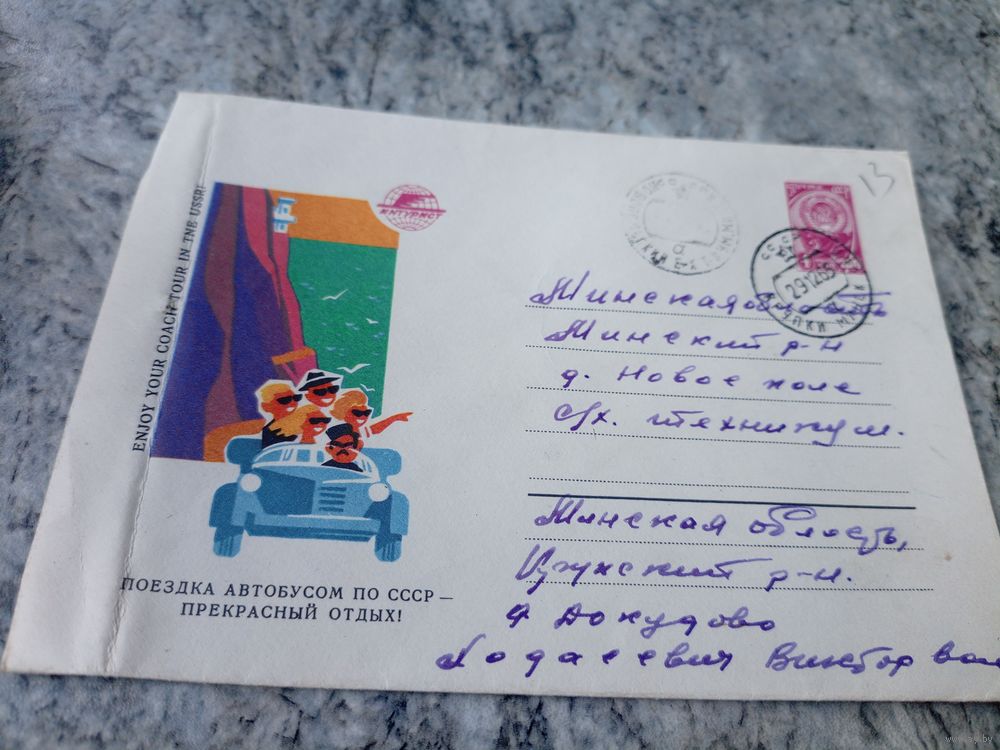 ENJOY YOUR COACH TOUR IN THE USSR!
ИНТУРИСТ
ПОЕЗДКА АВТОБУСОМ ПО СССР —
ПРЕКРАСНЫЙ ОТДЫХ!
13
Минская область
Минский р-н
д. Новое поле
с/х. техникум.
Минская область,
р-н.
д Докудово
Ходасевич Виктор
www.ay.by